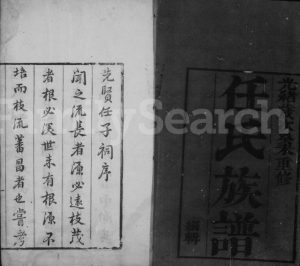 任氏族譜
先賢任子祠序
聞之流長者源必遠枝茂
者根必深世未有根源不
培而枝流蕃昌者也嘗考
FamilySearch